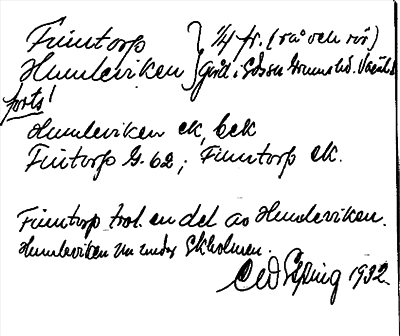 Finntorp } 1/4 fr. (rå och rör)
Humleviken } gård i
forts!
Humleviken ek, bek
Fintorp G. 62; Finntorp ek.
Finntorp trol. en del av Humleviken.
Humleviken nu under Ekholmen.
1932